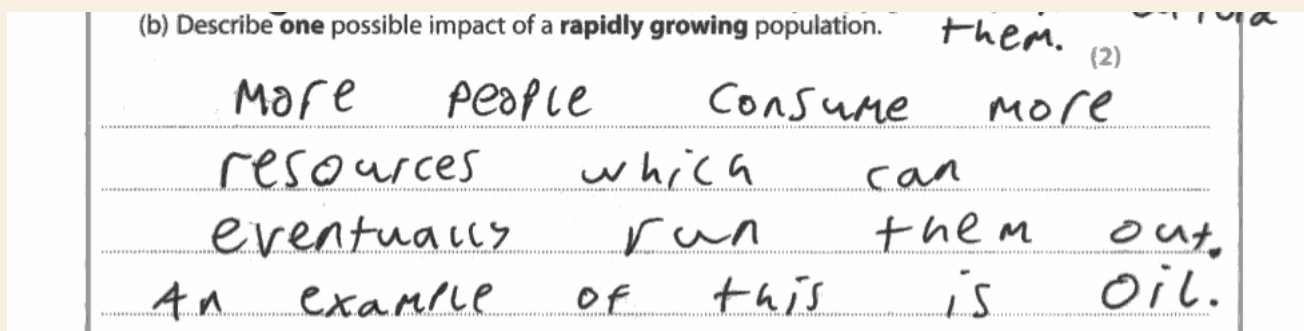 (b) Describe one possible impact of a rapidly growing population.
them.
(2)
More people consume more
resources which can
eventually run them out.
An example of this is oil.